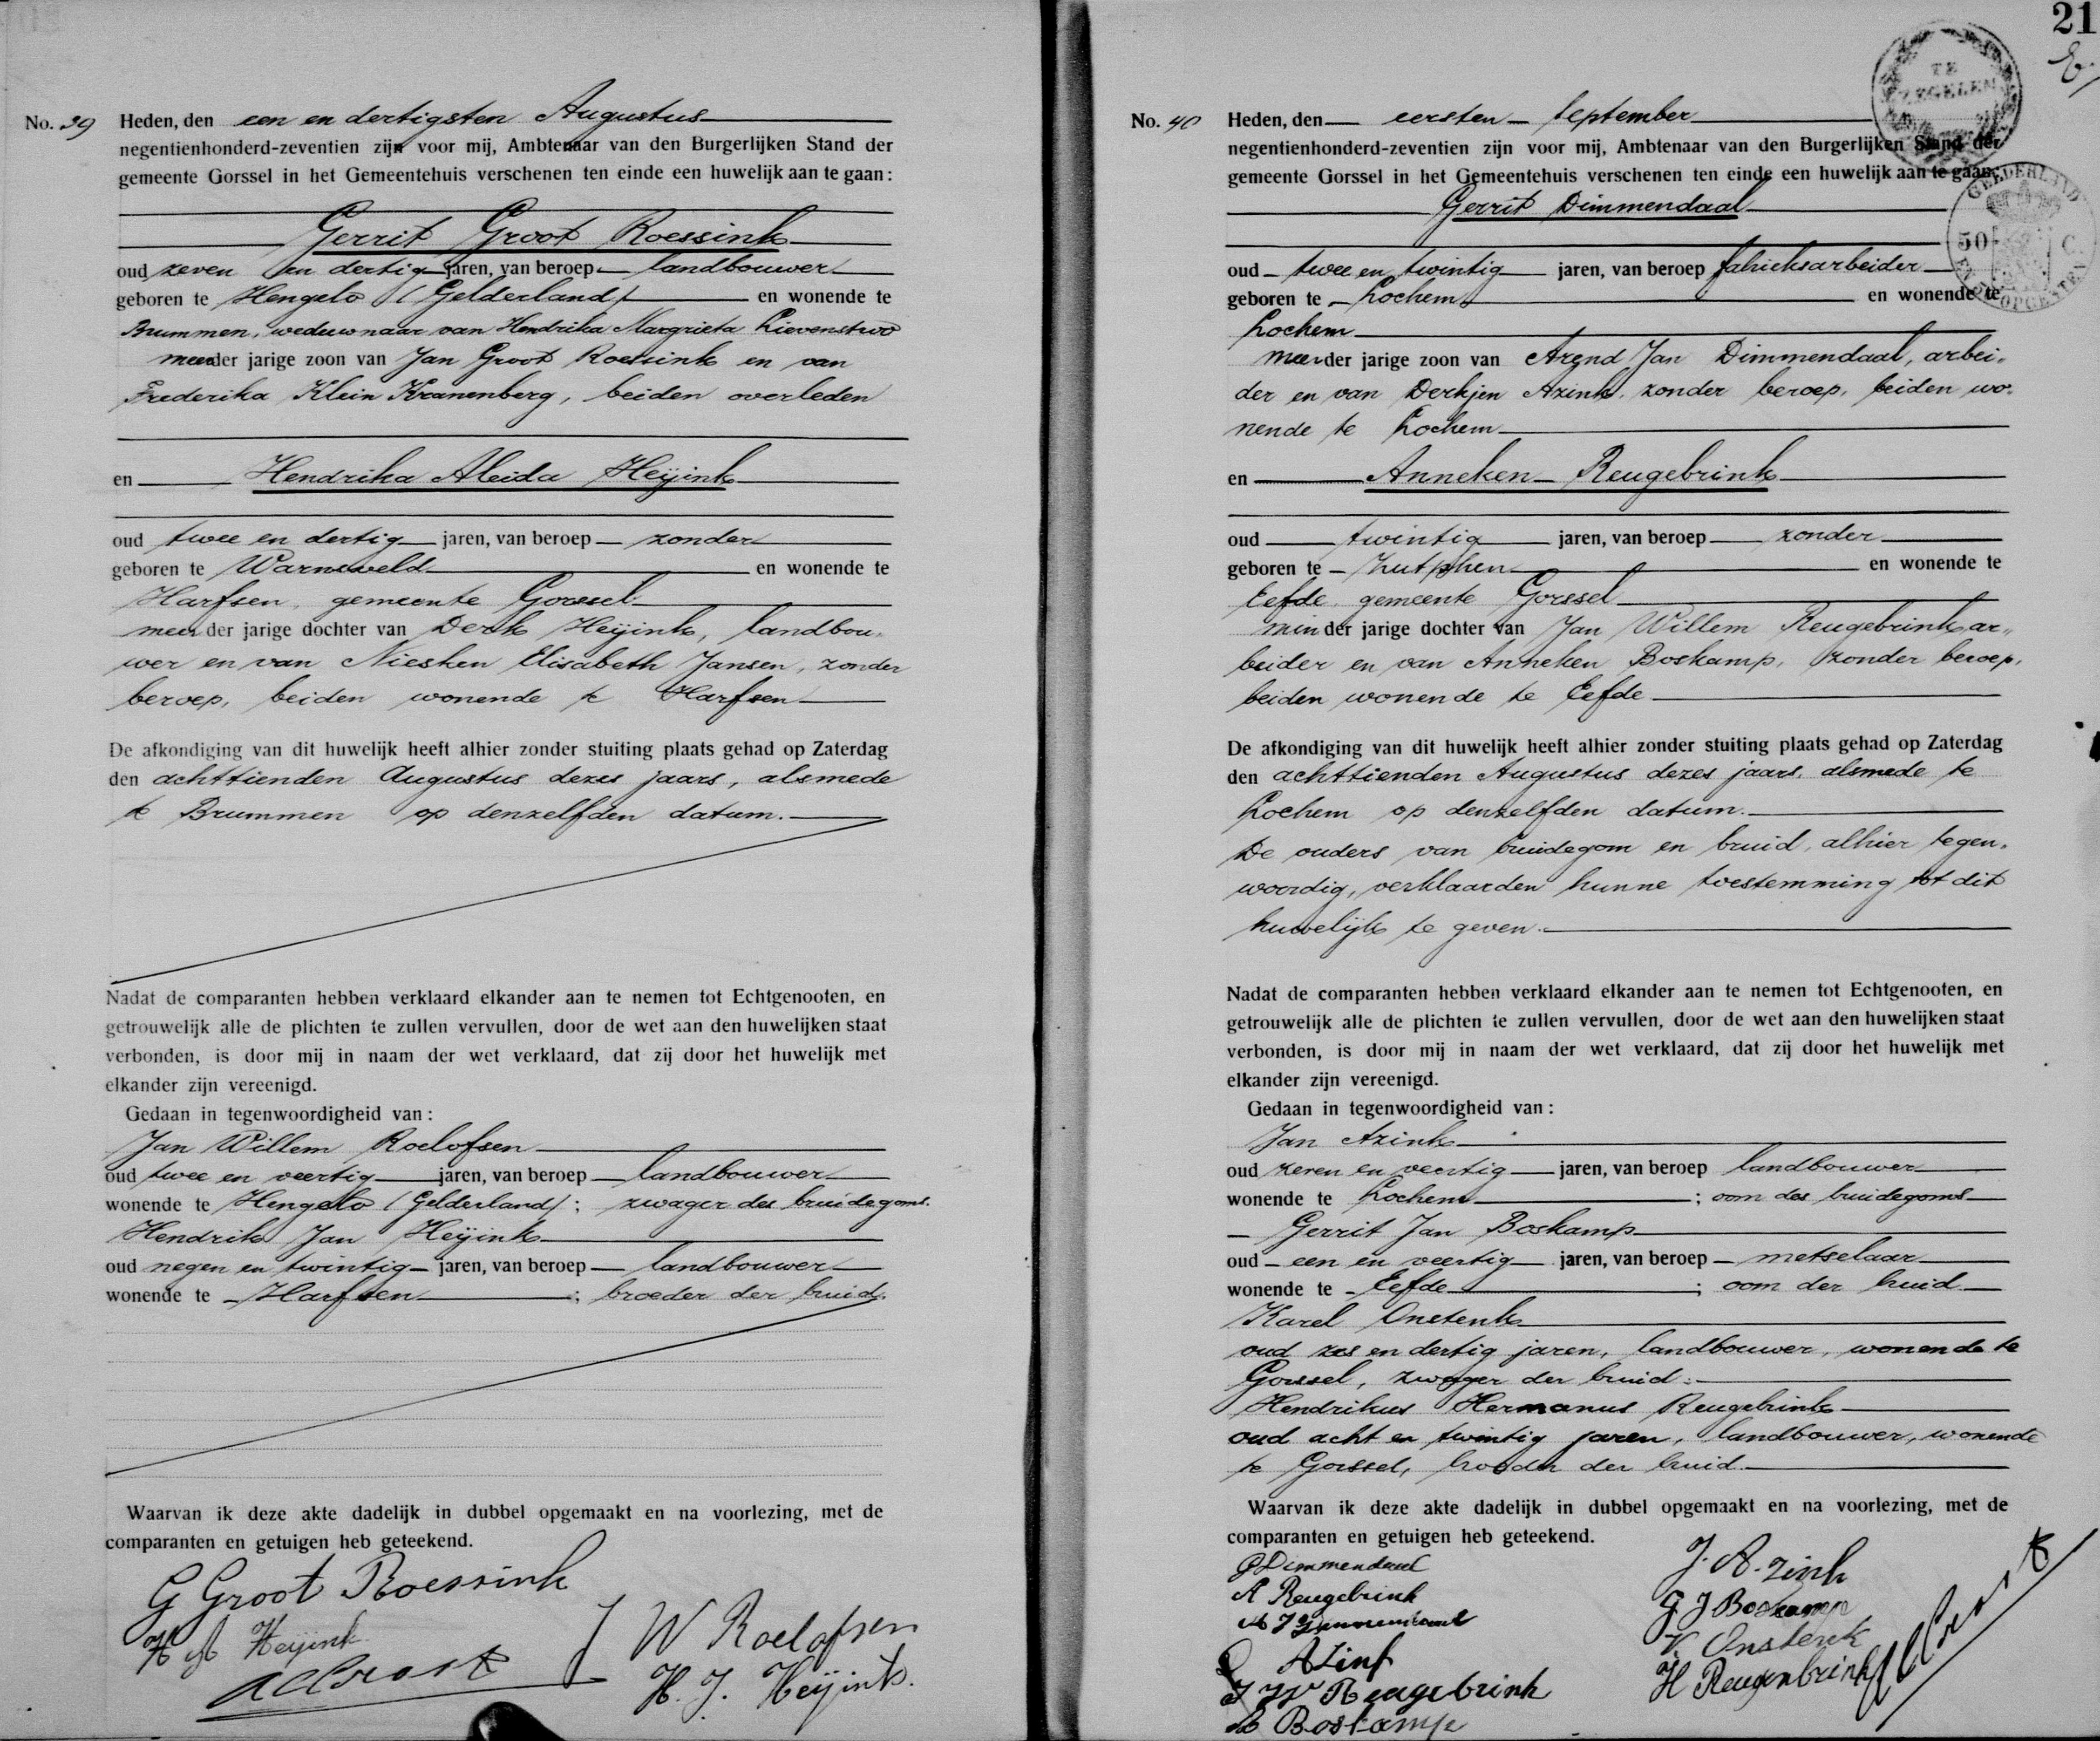 No. 39 Heden, den een en dertigsten Augustus
negentienhonderd-zeventien zijn voor mij, Ambtenaar van den Burgerlijken Stand der
gemeente Gorssel in het Gemeentehuis verschenen ten einde een huwelijk aan te gaan:
Gerrit Groot Roessink
oud zeven en dertig jaren, van beroep landbouwer
geboren te Hengelo (Gelderland) en wonende te
Brummen, weduwnaar van Hendrika Margrieta Lievenstroo
meerder jarige zoon van Jan Groot Roessink en van
Frederika Klein Kranenberg, beiden overleden
en Hendrika Aleida Heijink
oud twee en dertig jaren, van beroep zonder
geboren te Warnsveld en wonende te
Harfsen, gemeente Gorssel
meerder jarige dochter van Derk Heijink, landbou-
wer en van Niesken Elisabeth Jansen, zonder
beroep, beiden wonende te Harfsen
De afkondiging van dit huwelijk heeft alhier zonder stuiting plaats gehad op Zaterdag
den achttienden Augustus dezes jaars, alsmede
te Brummen op denzelfden datum.
Nadat de comparanten hebben verklaard elkander aan te nemen tot Echtgenooten, en
getrouwelijk alle de plichten te zullen vervullen, door de wet aan den huwelijken staat
verbonden, is door mij in naam der wet verklaard, dat zij door het huwelijk met
elkander zijn vereenigd.
Gedaan in tegenwoordigheid van:
Jan Willem Roelofsen
oud twee en veertig jaren, van beroep landbouwer
wonende te Hengelo (Gelderland); zwager des bruidegoms.
Hendrik Jan Heijink
oud negen en twintig jaren, van beroep landbouwer
wonende te Harfsen; broeder der bruid.
Waarvan ik deze akte dadelijk in dubbel opgemaakt en na voorlezing, met de
comparanten en getuigen heb geteekend.
G Groot Roessink
H A Heijink
J W Roelofsen
H. J. Heijink.
21
TE ZEGELEN
GELDERLAND
50 C.
No. 40 Heden, den eersten September
negentienhonderd-zeventien zijn voor mij, Ambtenaar van den Burgerlijken Stand der
gemeente Gorssel in het Gemeentehuis verschenen ten einde een huwelijk aan te gaan:
Gerrit Dimmendaal
oud twee en twintig jaren, van beroep fabrieksarbeider
geboren te Lochem en wonende te
Lochem
meerder jarige zoon van Arend Jan Dimmendaal, arbei-
der en van Derkjen Azink, zonder beroep, beiden wo-
nende te Lochem
en Anneken Reugebrink
oud twintig jaren, van beroep zonder
geboren te Zutphen en wonende te
Eefde, gemeente Gorssel
minder jarige dochter van Jan Willem Reugebrink ar-
beider en van Anneken Boskamp, zonder beroep,
beiden wonende te Eefde
De afkondiging van dit huwelijk heeft alhier zonder stuiting plaats gehad op Zaterdag
den achttienden Augustus dezes jaars, alsmede te
Lochem op denzelfden datum.
De ouders van bruidegom en bruid, alhier tegen-
woordig, verklaarden hunne toestemming tot dit
huwelijk te geven.
Nadat de comparanten hebben verklaard elkander aan te nemen tot Echtgenooten, en
getrouwelijk alle de plichten te zullen vervullen, door de wet aan den huwelijken staat
verbonden, is door mij in naam der wet verklaard, dat zij door het huwelijk met
elkander zijn vereenigd.
Gedaan in tegenwoordigheid van:
Jan Azink
oud zeven en veertig jaren, van beroep landbouwer
wonende te Lochem; oom des bruidegoms
Gerrit Jan Boskamp
oud een en veertig jaren, van beroep metselaar
wonende te Eefde; oom der bruid
Karel Onstenk
oud zes en dertig jaren, landbouwer, wonende te
Gorssel, zwager der bruid;
Hendrikus Hermanus Reugebrink
oud acht en twintig jaren, landbouwer, wonende
te Gorssel, broeder der bruid.
Waarvan ik deze akte dadelijk in dubbel opgemaakt en na voorlezing, met de
comparanten en getuigen heb geteekend.
G Dimmendaal
A Reugebrink
A J Dimmendaal
D Azink
J W Reugebrink
A Boskamp
J. Azink
G J Boskamp
K Onstenk
H Reugenbrink